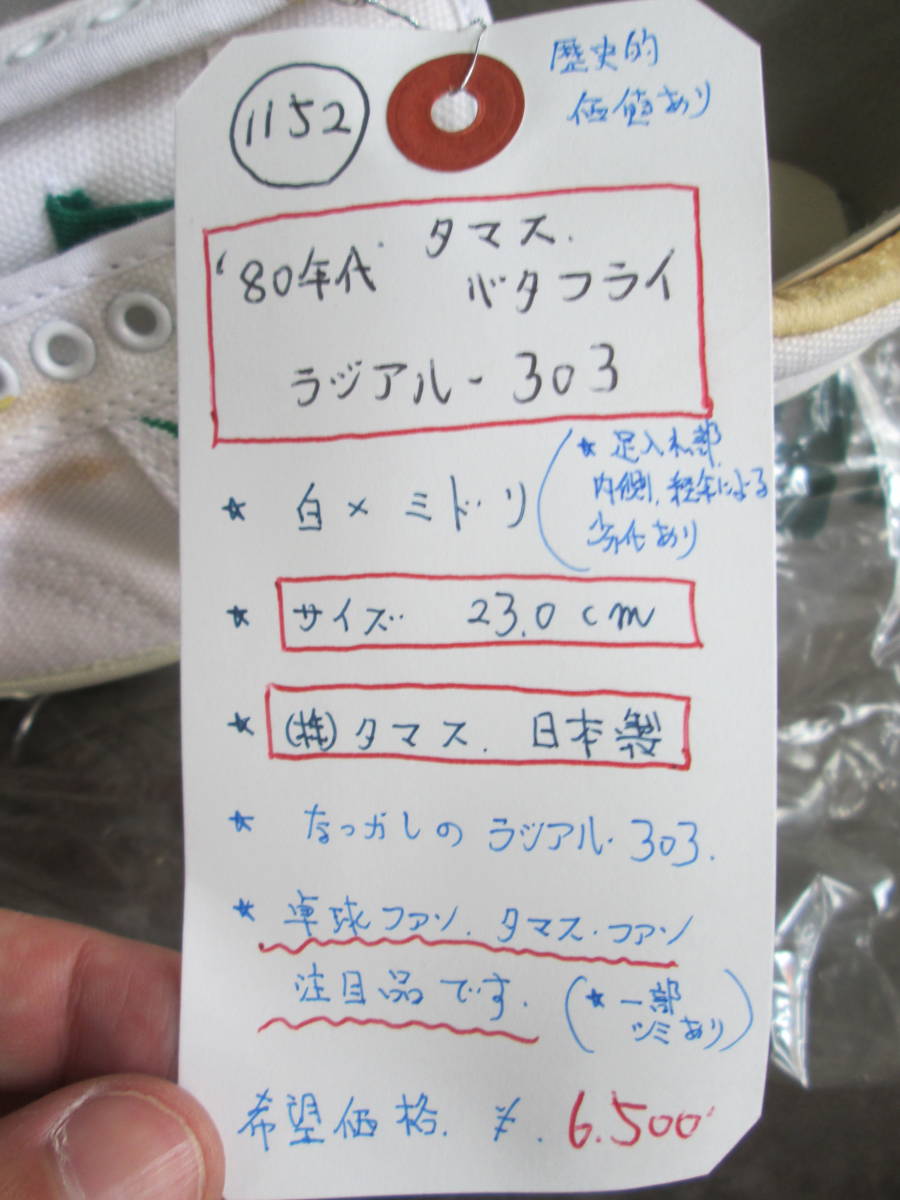 1152
歴史的
価値あり
'80年代 タマス.
バタフライ
ラジアル-303
★ 白×ミドリ
(★足入れ部
内側、経年による
劣化あり
★ サイズ 23.0cm
★ (株)タマス. 日本製
★ なつかしの ラジアル・303.
★ 卓球ファン. タマス・ファン
注目品です.
(★一部
シミあり)
希望価格. ¥. 6.500'